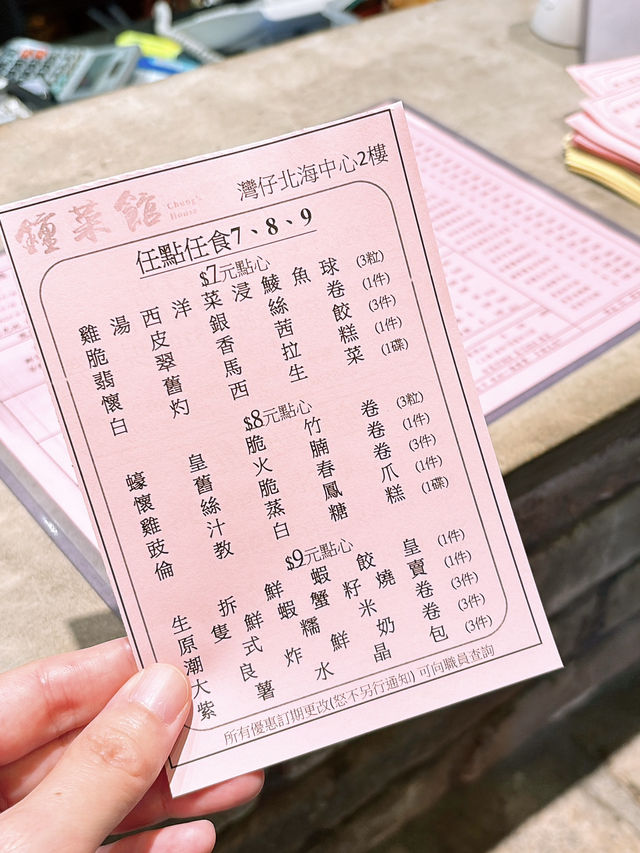 鐘菜館
Chung's
House
灣仔北海中心2樓
任點任食7、8、9
$7元點心
雞湯西洋菜浸鯪魚球 (3粒)
脆皮銀絲卷 (1件)
翡翠香茜餃 (3件)
懷舊馬拉糕 (1件)
白灼西生菜 (1碟)
$8元點心
蠔皇脆竹卷 (3粒)
懷舊火腩卷 (1件)
雞絲脆春卷 (3件)
豉汁蒸鳳爪 (1件)
倫教白糖糕 (1碟)
$9元點心
生拆鮮蝦餃皇 (1件)
原隻鮮蝦蟹籽燒賣 (1件)
潮式糯米卷 (3件)
大良炸鮮奶卷 (3件)
紫薯水晶包 (3件)
所有優惠訂期更改(怒不另行通知) 可向職員查詢